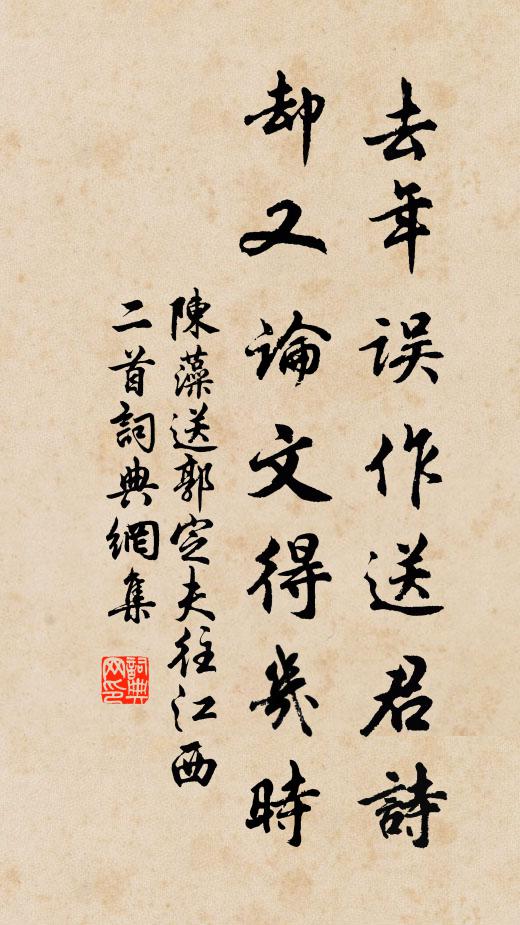 去年误作送君詩
却又論文得幾時
陳藻送郭定夫往江西
二首詞典網集
詞典网印